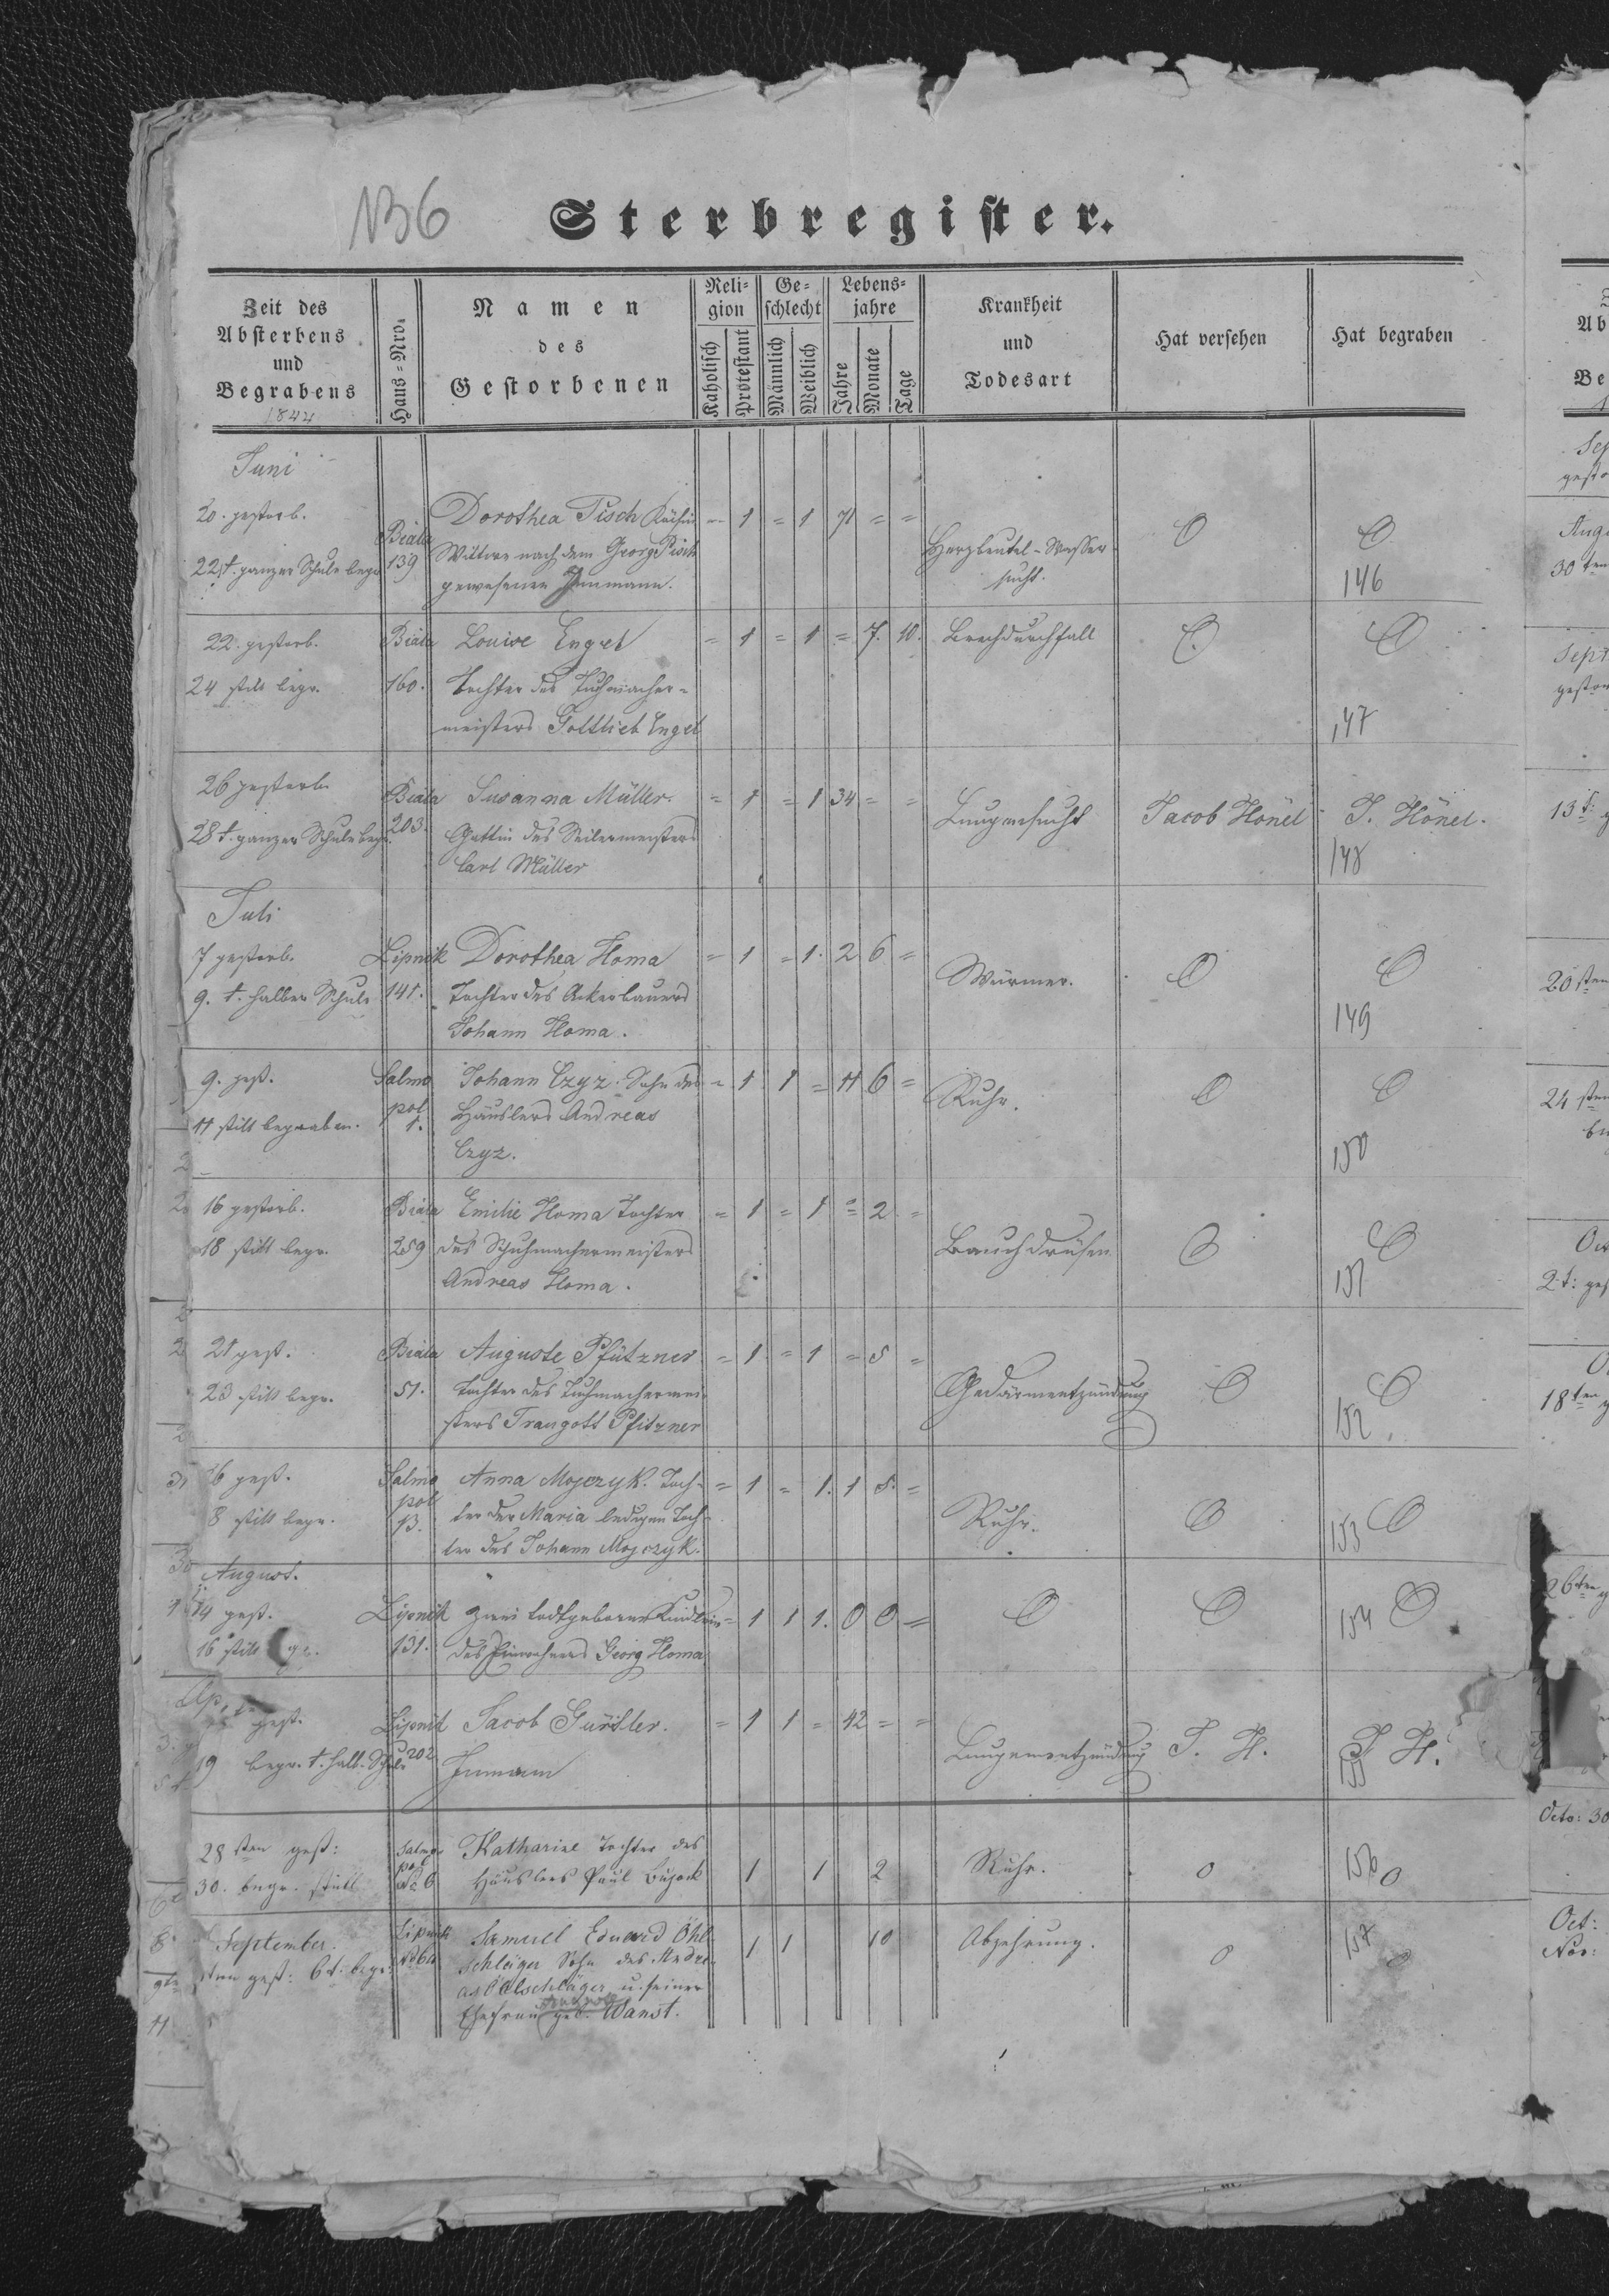 NB6
Sterbregister.
Zeit des Absterbens und Begrabens
1844
Haus-Nro.
Namen des Gestorbenen
Religion
Katholisch
Protestant
Geschlecht
Männlich
Weiblich
Lebensjahre
Jahre
Monate
Tage
Krankheit und Todesart
Hat versehen
Hat begraben
Juni
20. gestorb.
22. t. ganzer Schule begr.
Biala
139
Dorothea Pisch
Wittwe nach dem Georg Pisch
gewesener Inmann.
= 1 = 1 71 = =
Herzbeutel-Wasser
sucht.
O
O
146
22. gestorb.
24 still begr.
Biala
160.
Louise Engel
Tochter des Tuchmacher-
meisters Gottlieb Engel
= 1 = 1 = 7. 10.
Brechdurchfall
O
O
147
26 gestorb.
28 t. ganzer Schule begr.
Biala
203.
Susanna Müller.
Gattin des Seilermeisters
Carl Müller
= 1 = 1 34 = =
Lungensucht
Jacob Hönel
J. Hönel.
148
Juli
7 gestorb.
9. t. halber Schule
Lipnik
141.
Dorothea Homa
Tochter des Ackerbauers
Johann Homa.
= 1 = 1. 2 6 =
Würmer.
O
O
149
9. gest.
11 still begraben.
Salmo
pol
1.
Johann Czyz. Sohn des
Häuslers Andreas
Czyz.
= 1 1 = 11 6 =
Ruhr.
O
O
150
16 gestorb.
18 still begr.
Biala
259
Emilie Homa Tochter
des Schuhmachermeisters
Andreas Homa.
= 1 = 1 = 2 =
Bauchdrüsen
O
O
151
21 gest.
23 still begr.
Biala
51.
Auguste Pfützner
Tochter des Tuchmachermei-
sters Traugott Pfitzner
= 1 = 1 = 5 =
Gedärmentzündung
O
O
152.
6 gest.
8 still begr.
Salmo
pol
13.
Anna Mojczyk. Toch-
ter der Maria ledigen Toch-
ter des Johann Mojczyk.
= 1 = 1. 1 5. =
Ruhr.
O
O
153
August.
14 gest.
16 still
Lipnik
131.
Zwei todtgeborne Kindlein
des Einwohners Georg Homa
= 1 1 1. 0 0 =
O
O
O
154
gest.
19 begr. t. halb. Schule
Lipnik
202
Jacob Gürtler.
Inmann
= 1 1 = 42 = =
Lungenentzündung
J. H.
J. H.
155
28sten gest:
30. begr. still
Salmo
pol
No 6
Katharine Tochter des
Häuslers Paul Bujock
1 1 2
Ruhr.
0
0
156
September.
gest: 6 t. begr.
Lipnik
Samuel Eduard Öhl
schläger Sohn des Andre-
as Oelschläger u. seiner
Ehefrau geb. Wanst.
1 1 10
Abzehrung.
0
0
157